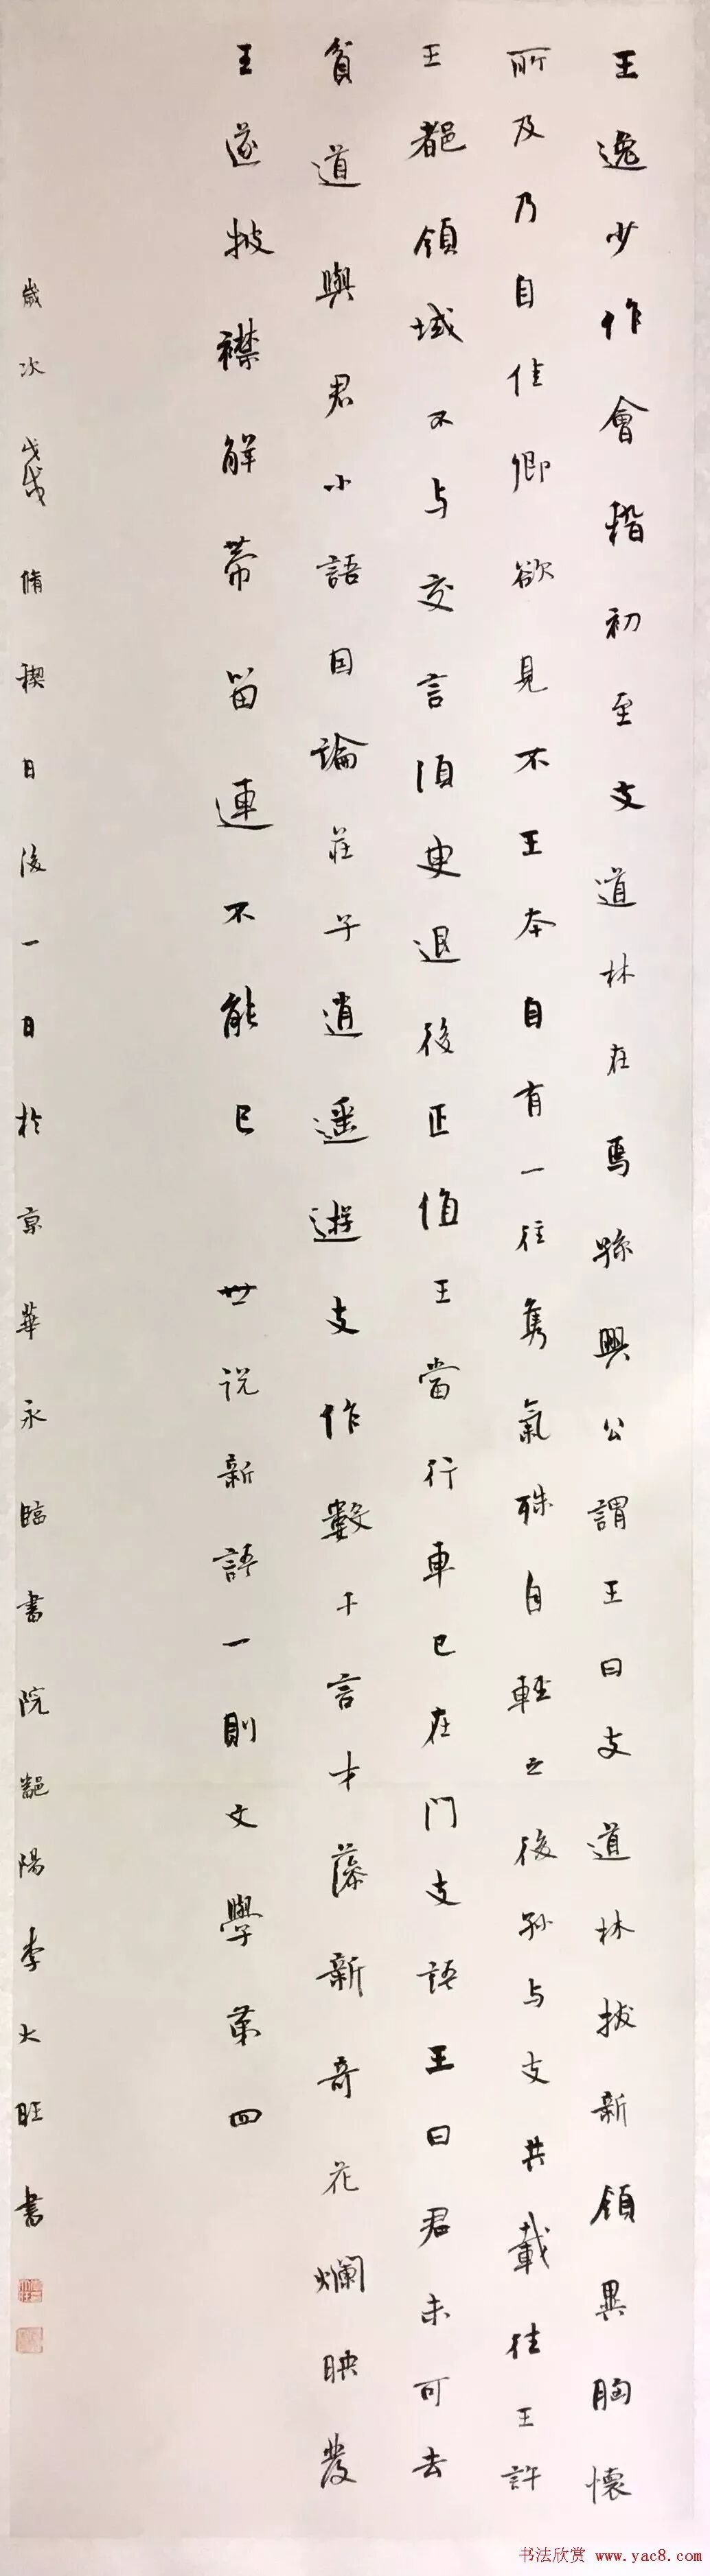 王逸少作會稽初至支道林在焉孫興公謂王曰支道林拔新領異胸懷
所及乃自佳卿欲見不王本自有一往雋氣殊自輕之後孙与支共載往王許
王都領域不与交言須臾退後正值王當行車已在門支語王曰君未可去
貧道與君小語因論莊子逍遥遊支作數千言才藻新奇花爛映發
王遂披襟解帶留連不能已 世说新語一則文學第四
歲次戊戌脩禊日後一日於京華永臨書院陽李大旺書
书法欣赏 www.yac8.com